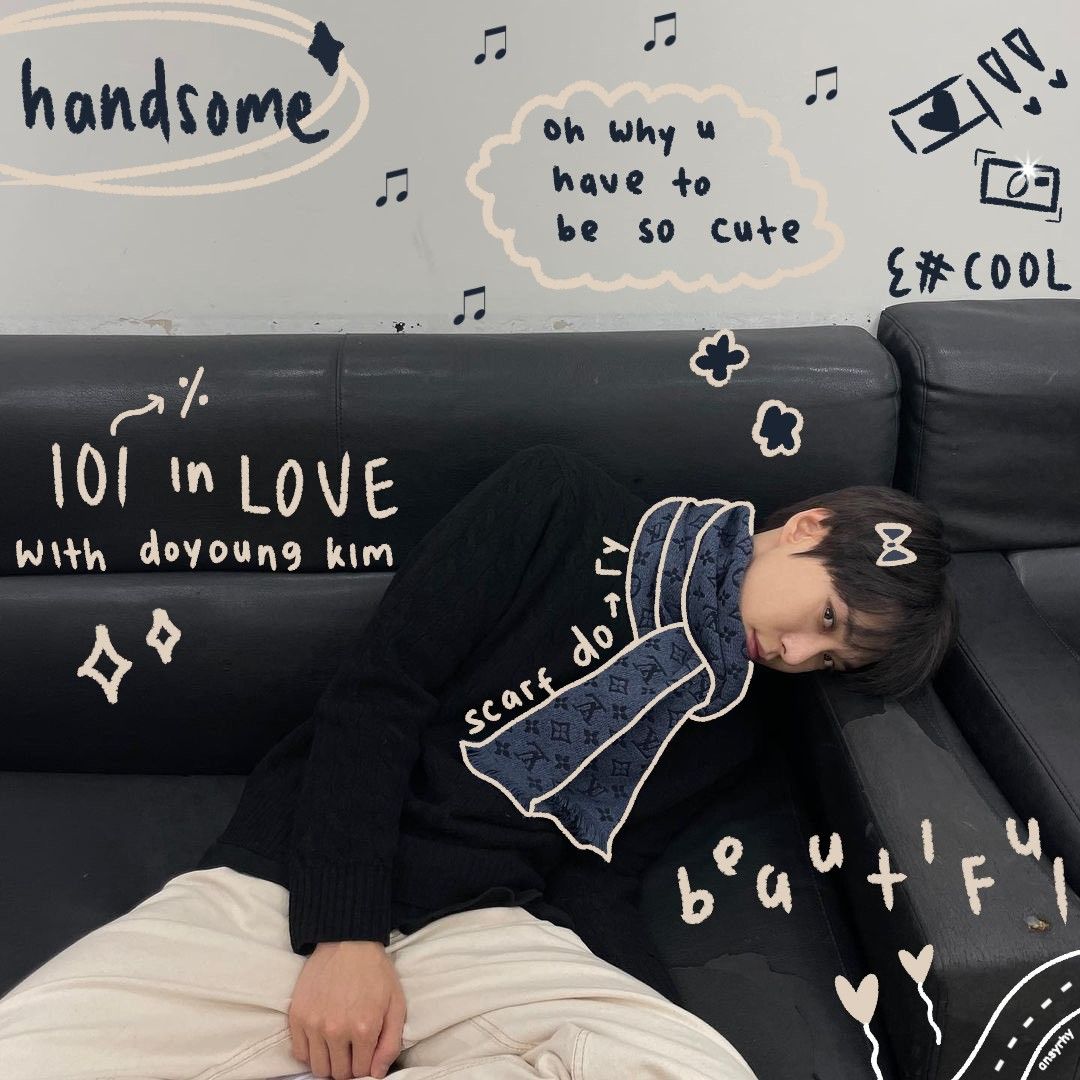 handsome
oh why u
have to
be so cute
{#COOL
%
101 in LOVE
with doyoung kim
scarf do→ry
beautiful
ansyrhy